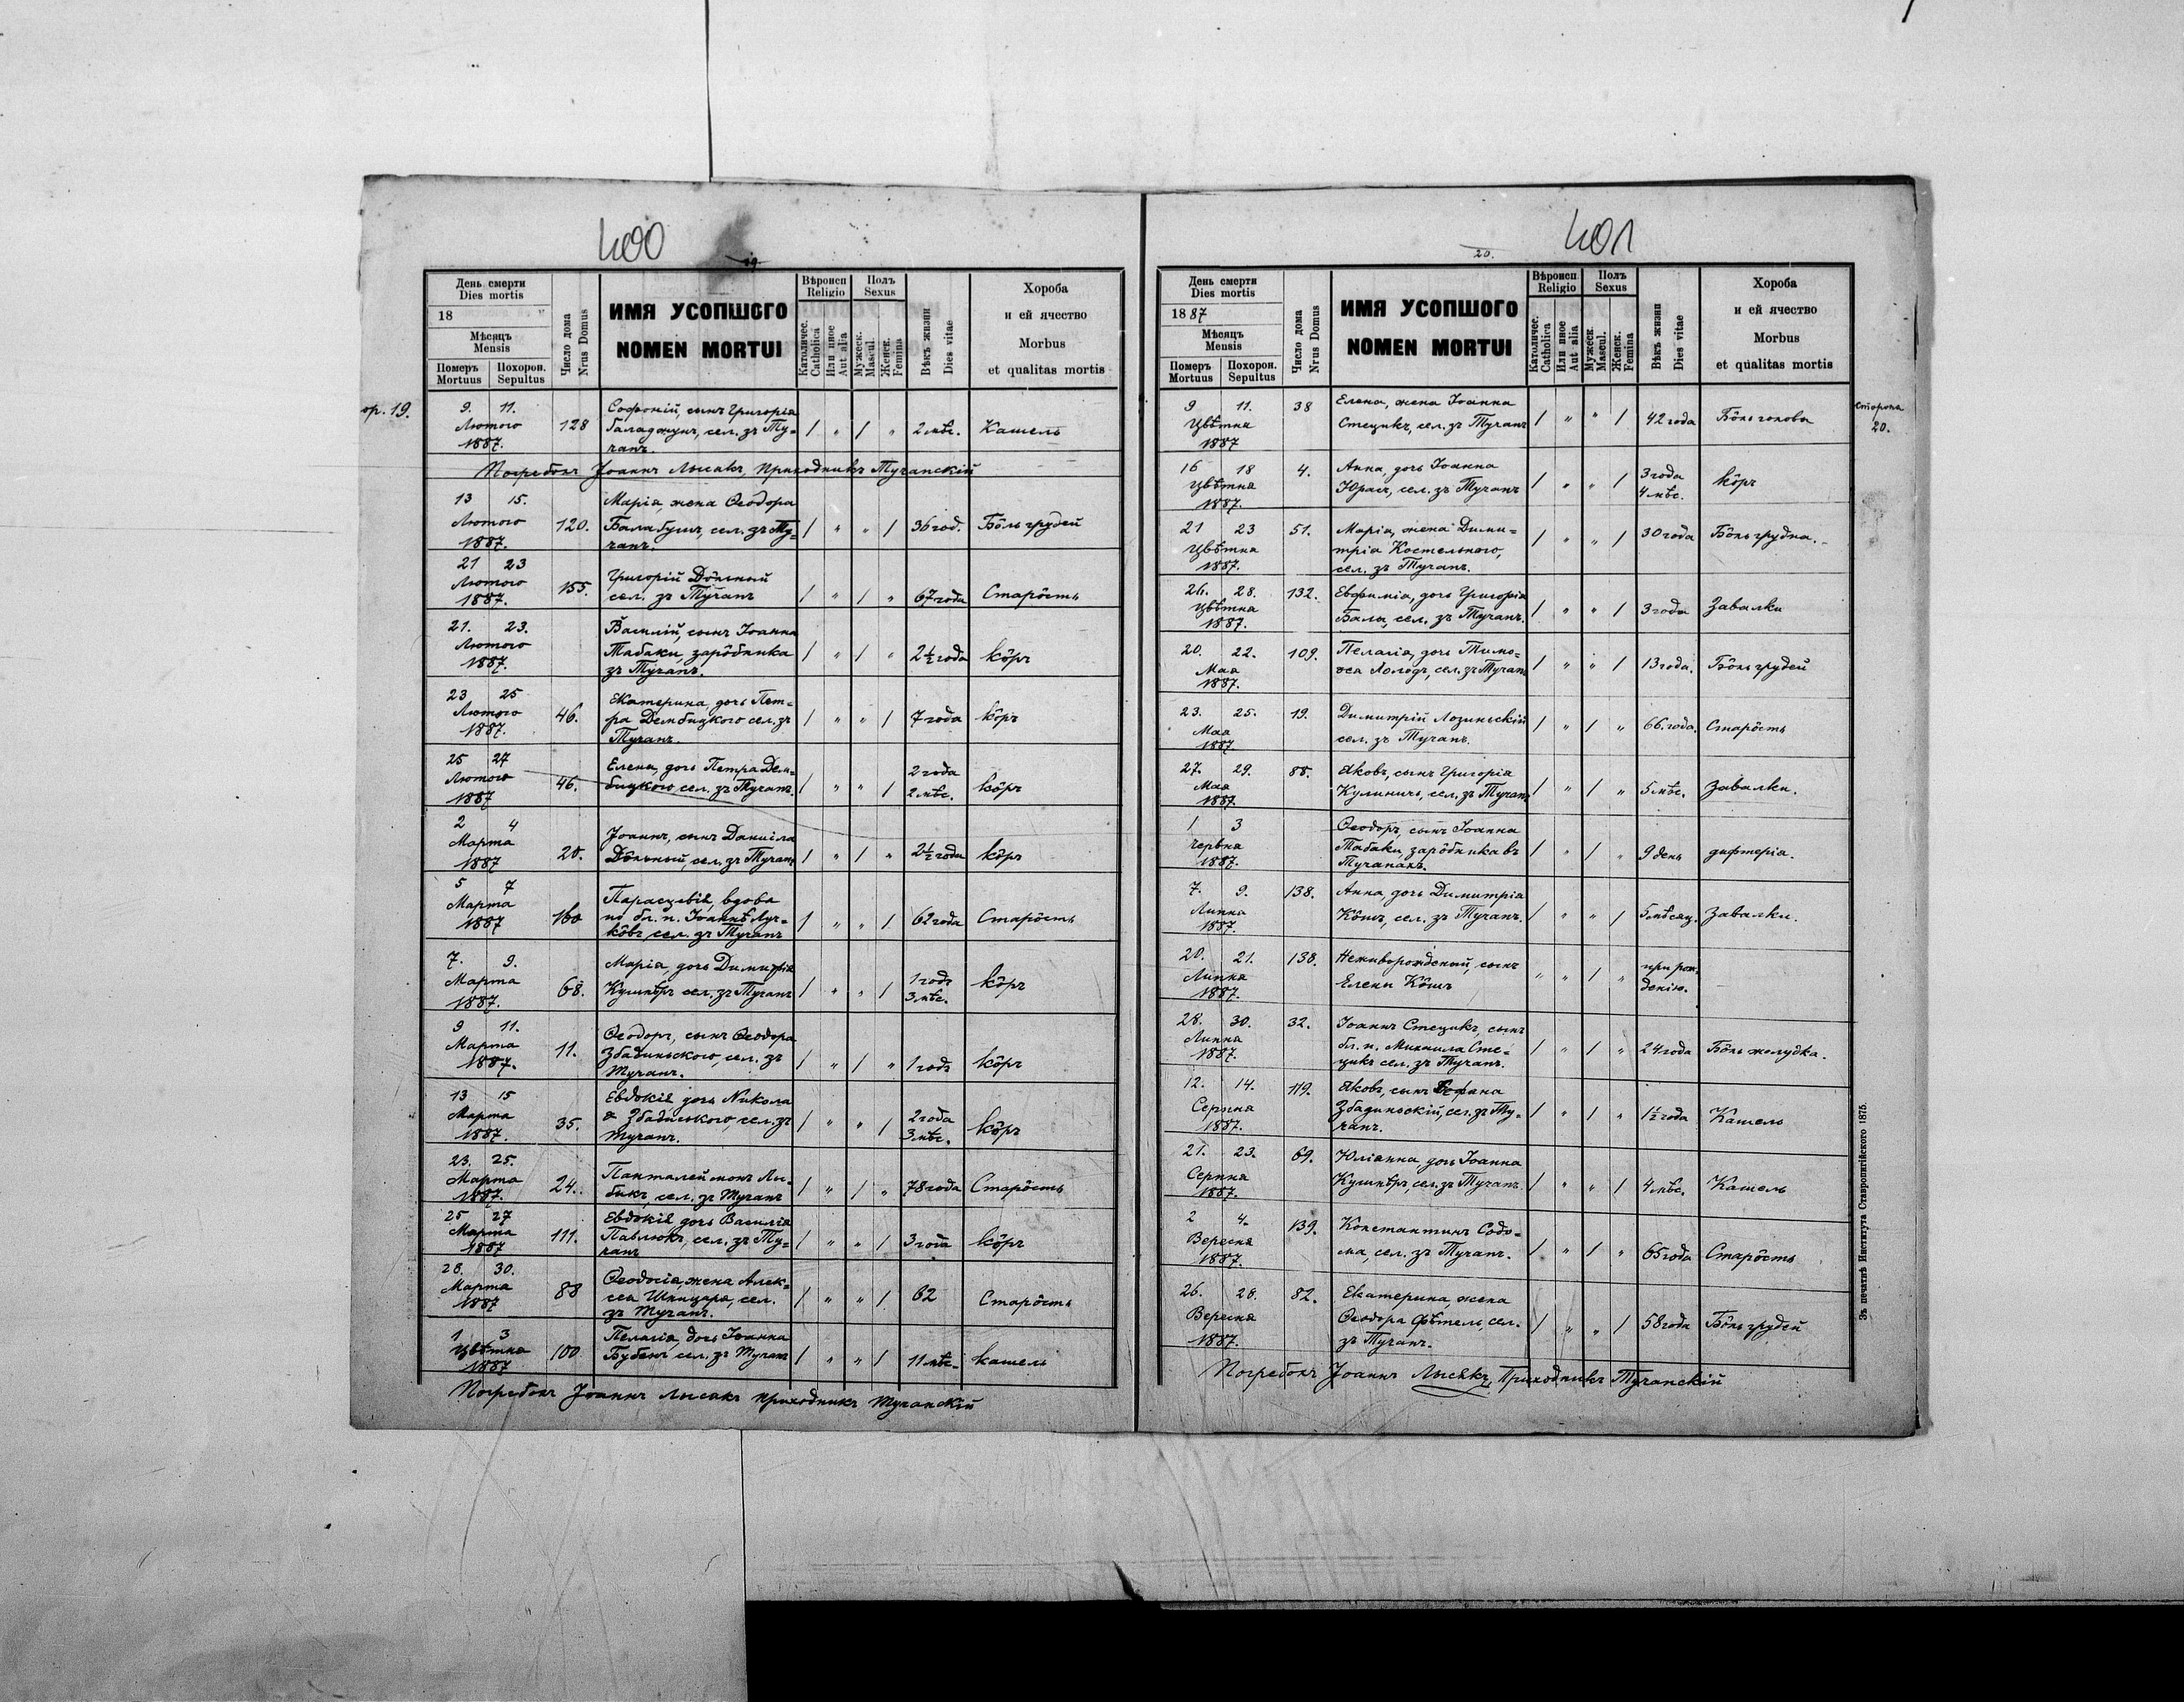 400
19
День смерти
Dies mortis
18 "
Мѣсяцъ
Mensis
Померъ
Mortuus
Похорон.
Sepultus
Число дома
Nrus Domus
ИМЯ УСОПШОГО
NOMEN MORTUI
Вѣроисп
Religio
Католичес.
Catholica
Или иное
Aut alia
Полъ
Sexus
Мужеск.
Mascul.
Женск.
Femina
Вѣкъ жизни
Dies vitae
Хороба
и ей ячество
Morbus
et qualitas mortis
ор. 19.
9. 11. Лютого 1887. 128 Софроній, сынъ Григорія
сел. зъ Ту-
чапъ. / " / " 2 мѣс. Кашель
Погребохъ Іоаннъ Лысакъ, приходникъ Тучапскій
13 15. Лютого 1887. 120. Марія, жена Ѳеодора
Балабухъ, сел. зъ Ту-
чапъ. / " " / 36 год. Бôль грудей
21 23 Лютого 1887. 155. Григорій Дôльный
сел. зъ Тучапъ / " / " 67 года Старôсть
21. 23. Лютого 1887. Василій, сынъ Іоанна
Табаки, зарôбника
зъ Тучапъ. / " / " 2½ года кôръ
23 25 Лютого 1887. 46. Екатерина, дочь Пет-
ра Дембицкого сел. зъ
Тучапъ. / " " / 7 года кôръ
25 27 Лютого 1887 46. Елена, дочь Петра Дем-
бицкого сел. зъ Тучапъ. / " " / 2 года 2 мѣс. кôръ
2 4 Марта 1887 20. Іоаннъ, сынъ Даниіла
Дôльный, сел. зъ Тучапъ / " / " 2½ года кôръ
5 7 Марта 1887 160 Параскевія, вдова
по бл. п. Іоаннѣ Луч-
кôвъ, сел. зъ Тучапъ / " " / 62 года Старôсть
7. 9. Марта 1887. 68. Марія, дочь Димитрія
Кушнѣръ сел. зъ Тучапъ / " " / 1 годъ 3 мѣс. кôръ
9 11. Марта 1887. 11. Ѳеодоръ, сынъ Ѳеодора
Збадиньского, сел. зъ
Тучапъ. / " / " 1 годъ кôръ
13 15 Марта 1887. 35. Евдокія дочь Никола
Збадиського, сел. зъ
Тучапъ. / " " / 2 года 3 мѣс. кôръ
23. 25. Марта 1887. 24. Панталеймонъ
сел. зъ Тучапъ / " / " 78 года Старôсть
25 27 Марта 1887 111. Евдокія, дочь Василія
Павлюкъ, сел. зъ Ту-
чапъ / " " / 3 года кôръ
28. 30. Марта 1887 88 Ѳеодосія, жена Алек-
сея Шпицаря, сел.
зъ Тучапъ. / " " / 62 Старôсть
1 3 Цвѣтня 1887 100 Пелагія, дочь Іоанна
Бубенъ сел. зъ Тучапъ / " " / 11 мѣс. кашель
Погребохъ Іоаннъ Лысакъ приходникъ Тучапскій
401
20.
День смерти
Dies mortis
1887
Мѣсяцъ
Mensis
Померъ
Mortuus
Похорон.
Sepultus
Число дома
Nrus Domus
ИМЯ УСОПШОГО
NOMEN MORTUI
Вѣроисп
Religio
Католичес.
Catholica
Или иное
Aut alia
Полъ
Sexus
Мужеск.
Mascul.
Женск.
Femina
Вѣкъ жизни
Dies vitae
Хороба
и ей ячество
Morbus
et qualitas mortis
сторона
20.
9 11. Цвѣтня 1887 38 Елена, жена Іоанна
Стецикъ, сел. зъ Тучапъ / " " / 42 года Бôль голова
16 18 Цвѣтня 1887. 4. Анна, дочь Іоанна
Юрасъ, сел. зъ Тучапъ / " " / 3 года 4 мѣс. кôръ
21 23 Цвѣтня 1887. 51. Марія, жена Дими-
трія Костельного,
сел. зъ Тучапъ. / " " / 30 года Бôль грудна.
26. 28. Цвѣтня 1887. 132. Евфимія, дочь Григорія
Бала, сел. зъ Тучапъ. / " " / 3 года Завалки
20. 22. Мая 1887. 109. Пелагія, дочь Тимо-
ѳея Холодъ, сел. зъ Тучапъ / " " / 13 года. Бôль грудей
23. 25. Мая 1887. 19. Димитрій Лозиньскій
сел. зъ Тучапъ. / " / " 66 года. Старôсть
27. 29. Мая 1887. 88. Яковъ, сынъ Григорія
Кулиничъ, сел. зъ Тучапъ / " / " 5 мѣс. Завалки.
1 3 Червня 1887. Ѳеодоръ, сынъ Іоанна
Табаки, зарôбника въ
Тучапахъ. / " / " 9 день дифтерія.
7. 9. Липня 1887. 138. Анна, дочь Димитрія
Кôшъ, сел. зъ Тучапъ. / " " / 5 мѣсяц. Завалки.
20. 21. Липня 1887. 138. Неживорожденый, сынъ
Елены Кôшъ " " / " при рож-
денію.
28. 30. Липня 1887. 32. Іоаннъ Стецикъ, сынъ
бл. п. Михаила Сте-
цикъ сел. зъ Тучапъ. / " / " 24 года Бôль желудка.
12. 14. Серпня 1887. 119. Яковъ, сынъ Стефана
Збадиньскій, сел. зъ Ту-
чапъ. / " / " 1½ года Кашель
21. 23. Серпня 1887. 69. Юліанна дочь Іоанна
Кушнѣръ, сел. зъ Тучапъ. / " " / 4 мѣс. Кашель
2 4. Вересня 1887. 139. Константинъ Содо-
ма, сел. зъ Тучапъ. / " / " 65 года Старôсть
26. 28. Вересня 1887. 82. Екатерина, жена
Ѳеодора Фѣтель, сел.
зъ Тучапъ. / " " / 58 года Бôль грудей
Погребохъ Іоаннъ Лысякъ, Приходникъ Тучапскій
Зъ печатнѣ Института Ставропигійского 1875.